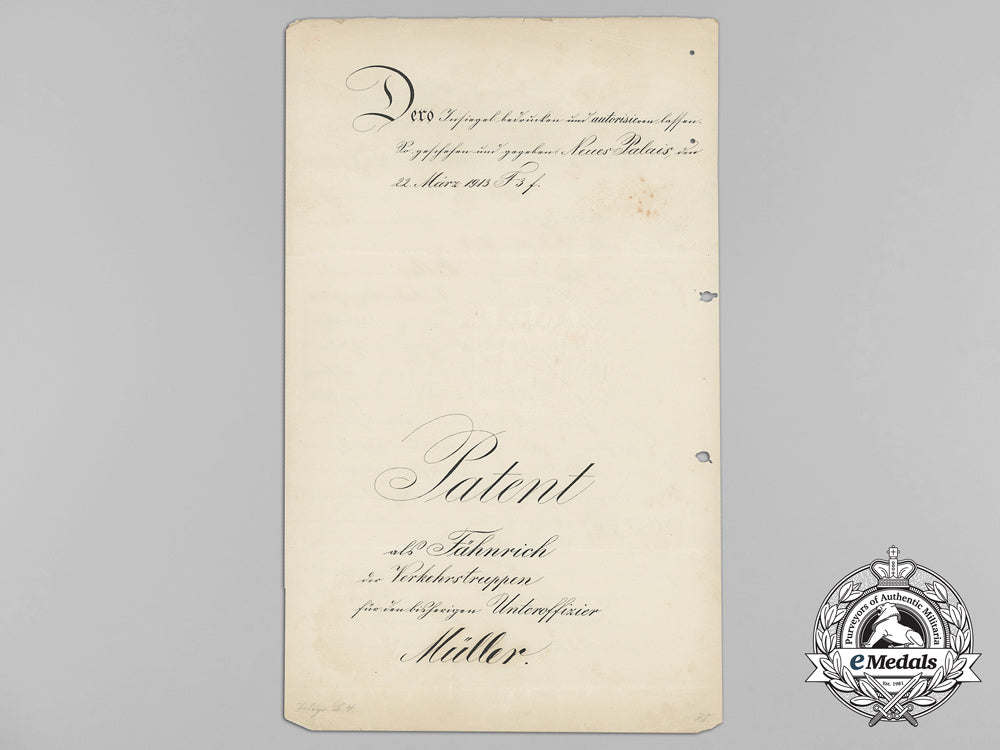 Dero Insiegel bedrucken und autorisieren lassen.
So geschehen und gegeben Neues Palais, den
22. März 1913
Patent
als Fähnrich
der Verkehrstruppen
für den bisherigen Unteroffizier
Müller.
Purveyors of Authentic Militaria
eMedals
Est. 1981